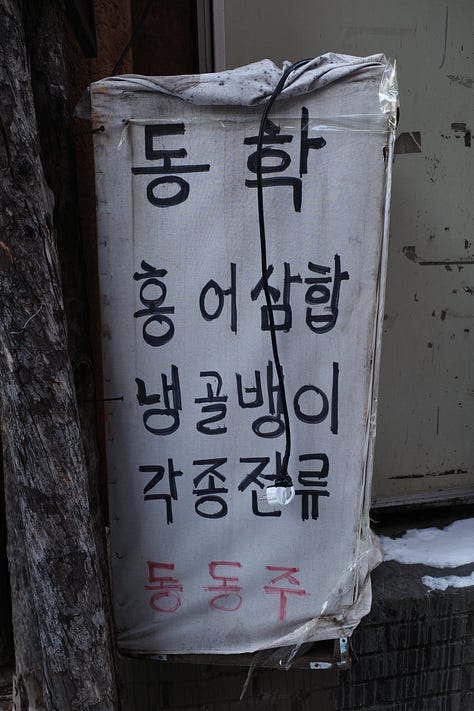 동학
홍어삼합
냉골뱅이
각종전류
동동주